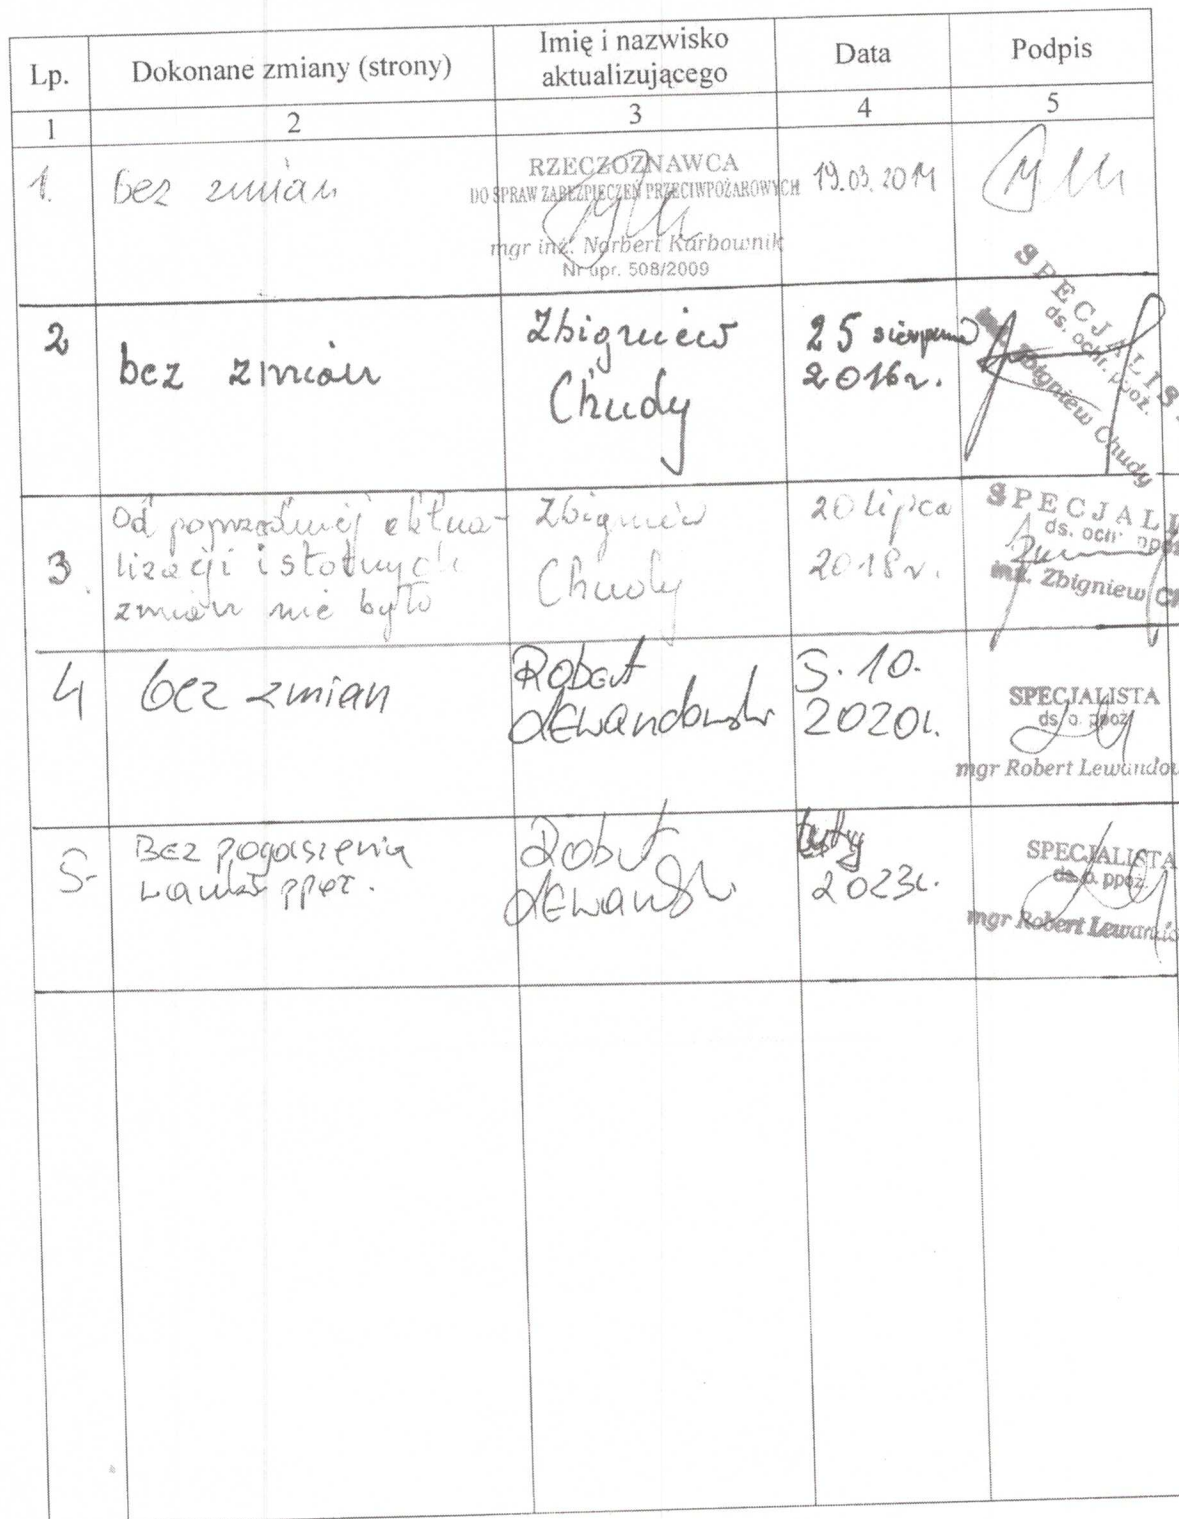 Lp.
Dokonane zmiany (strony)
Imię i nazwisko
aktualizującego
Data
Podpis
1
2
3
4
5
1.
bez zmian
RZECZOZNAWCA
DO SPRAW ZABEZPIECZEŃ PRZECIWPOŻAROWYCH
mgr inż. Norbert Karbownik
Nr upr. 508/2009
19.03.2014
2
bez zmian
Zbigniew
Chudy
25 sierpnia
2016r.
SPECJALIS
ds. ochr. ppoż.
inż. Zbigniew Chudy
3.
Od poprzedniej aktua-
lizacji istotnych
zmian nie było
Zbigniew
Chudy
20 lipca
2018r.
SPECJALI
ds. ochr. ppoż
inż. Zbigniew Ch
4
bez zmian
Robert
Lewandowski
5.10.
2020r.
SPECJALISTA
ds. o. ppoż.
mgr Robert Lewandow
5-
Bez pogorszenia
ppoż.
Robert
luty
2023r.
SPECJALISTA
ds. o. ppoż.
mgr Robert Lewando